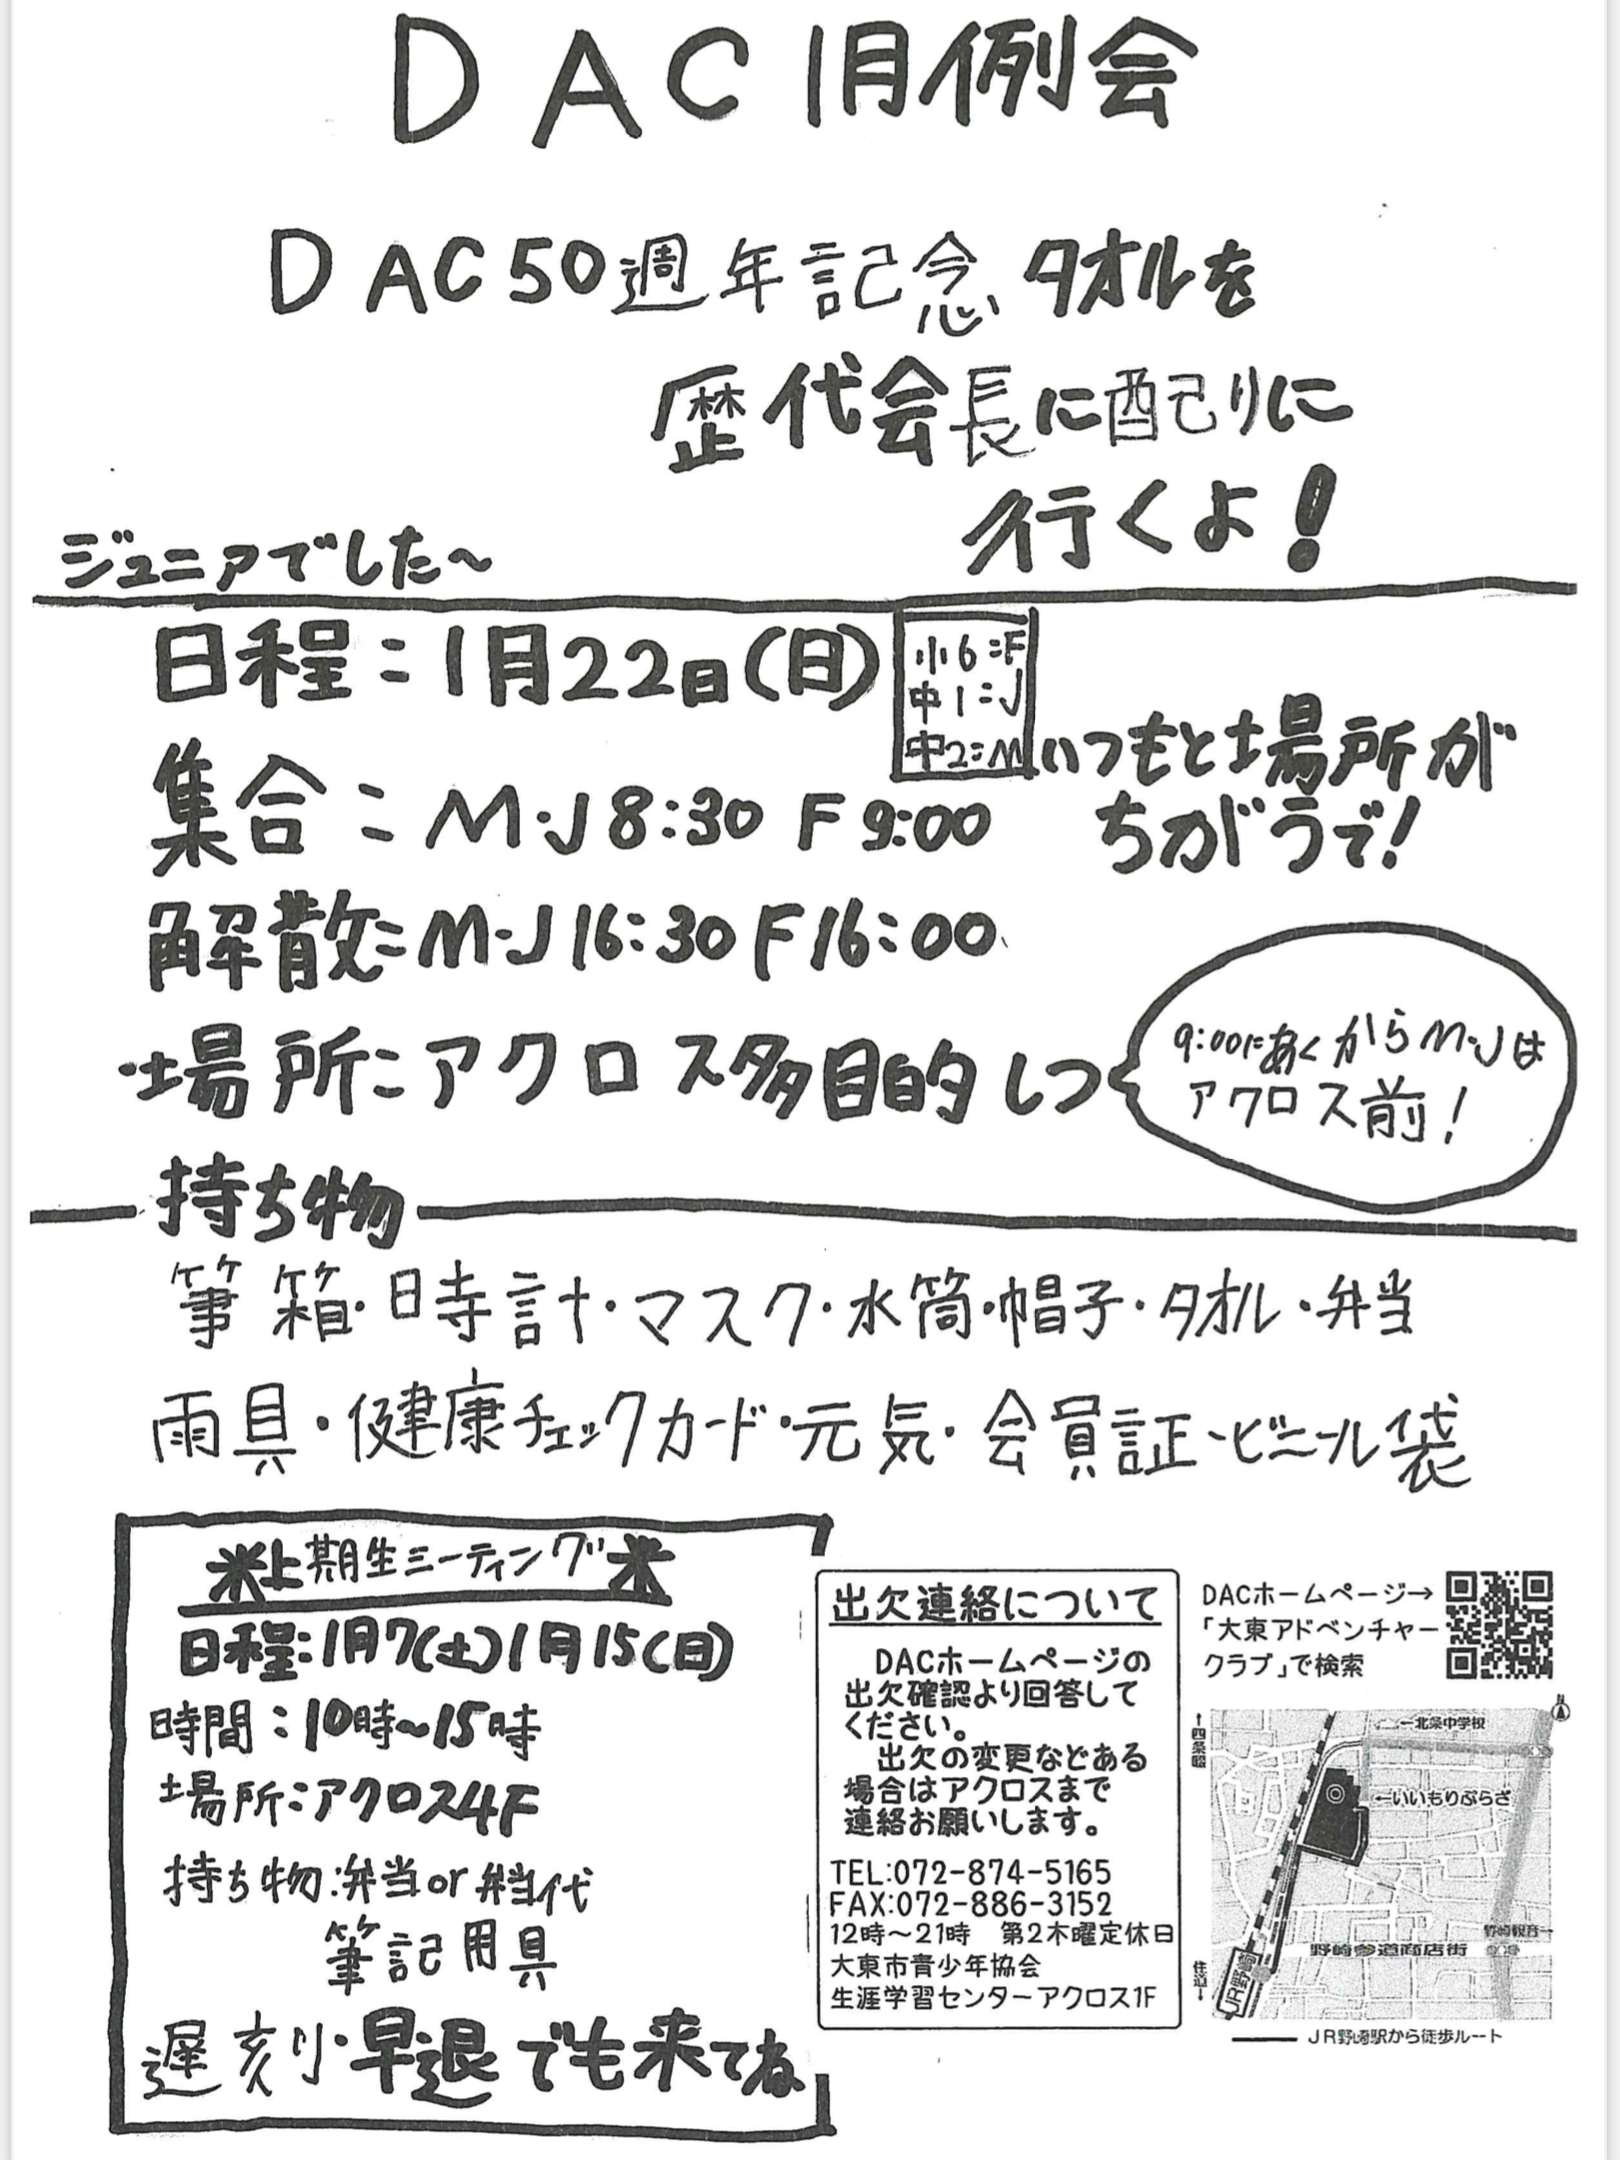 DAC 1月例会
DAC50週年記念タオルを
歴代会長に配りに
行くよ!
ジュニアでした〜
日程:1月22日(日)
小6=F
中1=J
中2=M
いつもと場所が
ちがうで!
集合:M・J 8:30 F 9:00
解散:M・J 16:30 F 16:00
場所:アクロス多目的しつ
9:00にあくからM・Jは
アクロス前!
持ち物
筆箱・時計・マスク・水筒・帽子・タオル・弁当
雨具・健康チェックカード・元気・会員証・ビニール袋
※上期生ミーティング※
日程:1月7(土)1月15(日)
時間:10時〜15時
場所:アクロス4F
持ち物:弁当or弁当代
筆記用具
遅刻・早退でも来てね
出欠連絡について
DACホームページの
出欠確認より回答して
ください。
出欠の変更などある
場合はアクロスまで
連絡お願いします。
TEL:072-874-5165
FAX:072-886-3152
12時〜21時 第2木曜定休日
大東市青少年協会
生涯学習センターアクロス1F
DACホームページ→
「大東アドベンチャー
クラブ」で検索
←北条中学校
↑四条畷
←いいもりぷらざ
野崎観音→
野崎参道商店街
住道↓
JR野崎
JR野崎駅から徒歩ルート